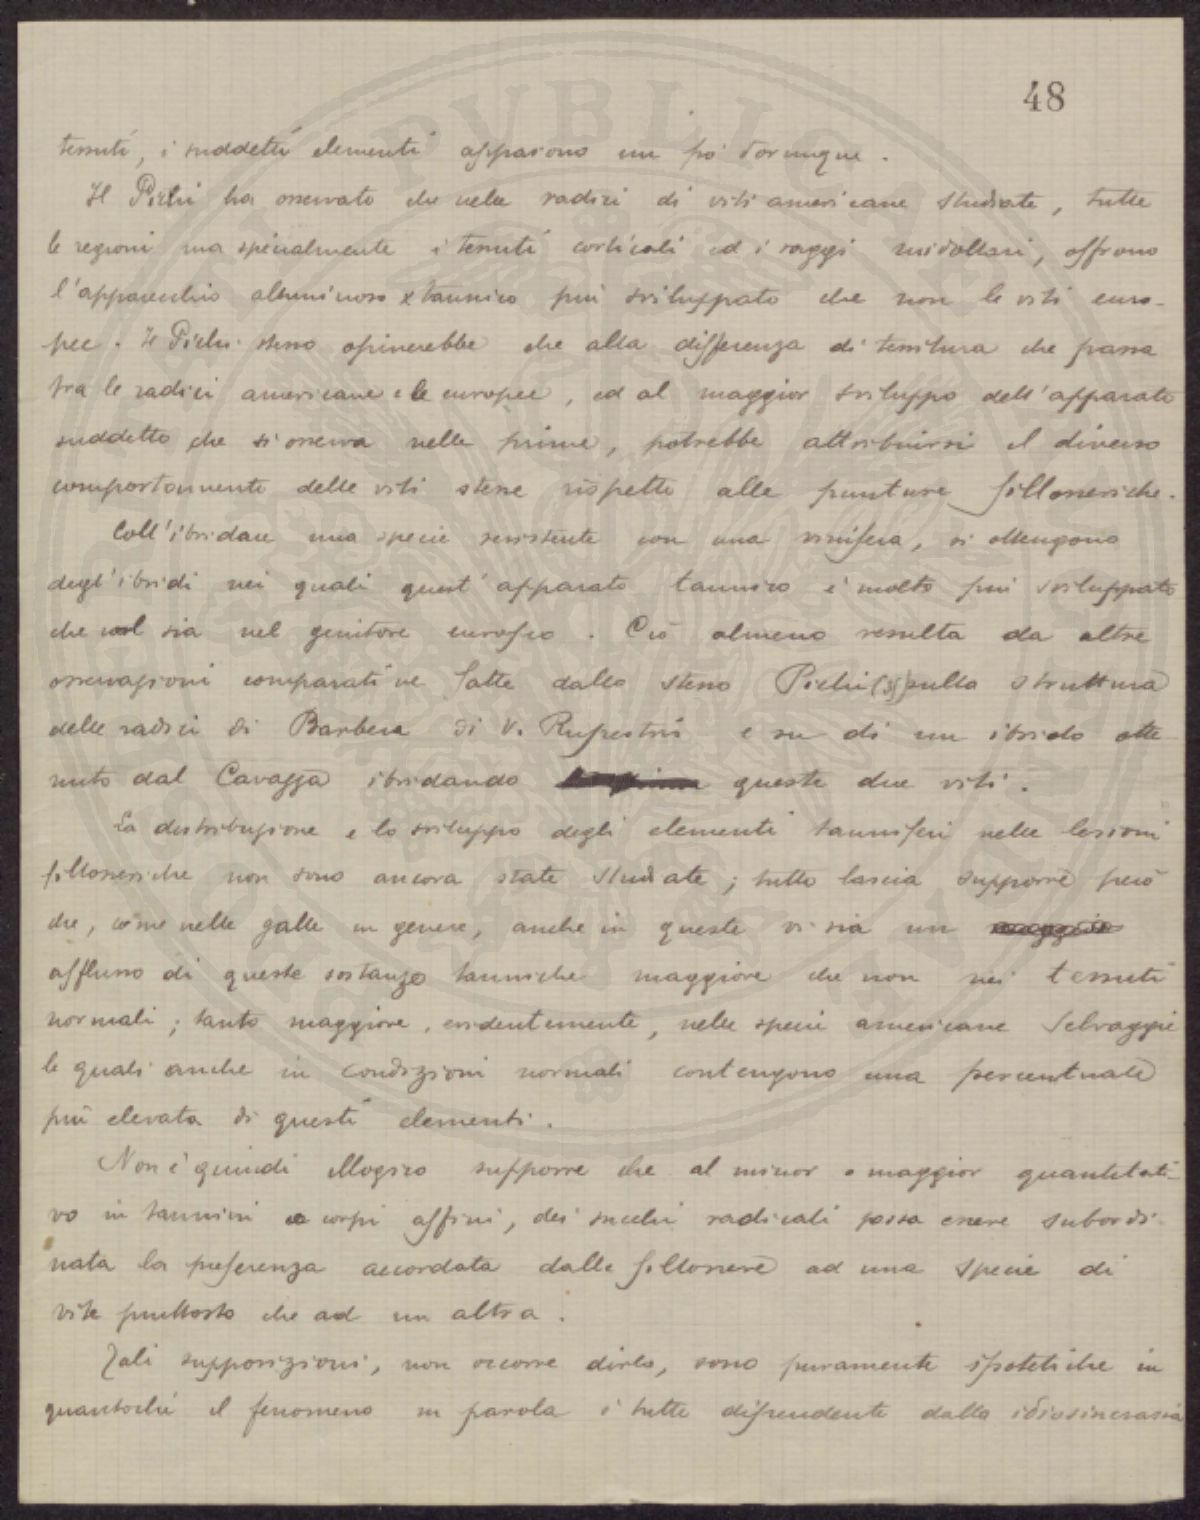 48
tessuti, i suddetti elementi appaiono un pò dovunque.
Il Pichi ha osservato che nelle radici di viti americane studiate, tutte
le regioni ma specialmente i tessuti corticali ed i raggi midollari, offrono
l'apparecchio albuminoso tannico più sviluppato che non le viti euro-
pee. Il Pichi stesso opinerebbe che alla differenza di tessitura che passa
tra le radici americane e le europee, ed al maggior sviluppo dell'apparato
suddetto che si osserva nelle prime, potrebbe attribuirsi il diverso
comportamento delle viti stesse rispetto alle punture fillosseriche.
Coll'ibridare una specie resistente con una vinifera, si ottengono
degl'ibridi nei quali quest'apparato tannico è molto più sviluppato
che sia nel genitore europeo. Ciò almeno resulta da altre
osservazioni comparative fatte dallo stesso Pichi sulla struttura
delle radici di Barbera di V. Rupestris e su di un ibrido otte
nuto dal Cavazza ibridando queste due viti.
La distribuzione e lo sviluppo degli elementi tanniferi nelle lesioni
fillosseriche non sono ancora state studiate; tutto lascia supporre però
che, come nelle galle in genere, anche in queste vi sia un
afflusso di queste sostanze tanniche maggiore che non nei tessuti
normali; tanto maggiore, evidentemente, nelle specie americane selvaggie
le quali anche in condizioni normali contengono una percentuale
più elevata di questi elementi.
Non è quindi illogico supporre che al minor o maggior quantitati-
vo in tannini o corpi affini, dei succhi radicali possa essere subordi-
nata la preferenza accordata dalle fillossere ad una specie di
vite piuttosto che ad un altra.
Tali supposizioni, non occorre dirlo, sono puramente ipotetiche in
quantochè il fenomeno in parola è tutto dipendente dalla idiosincrasia